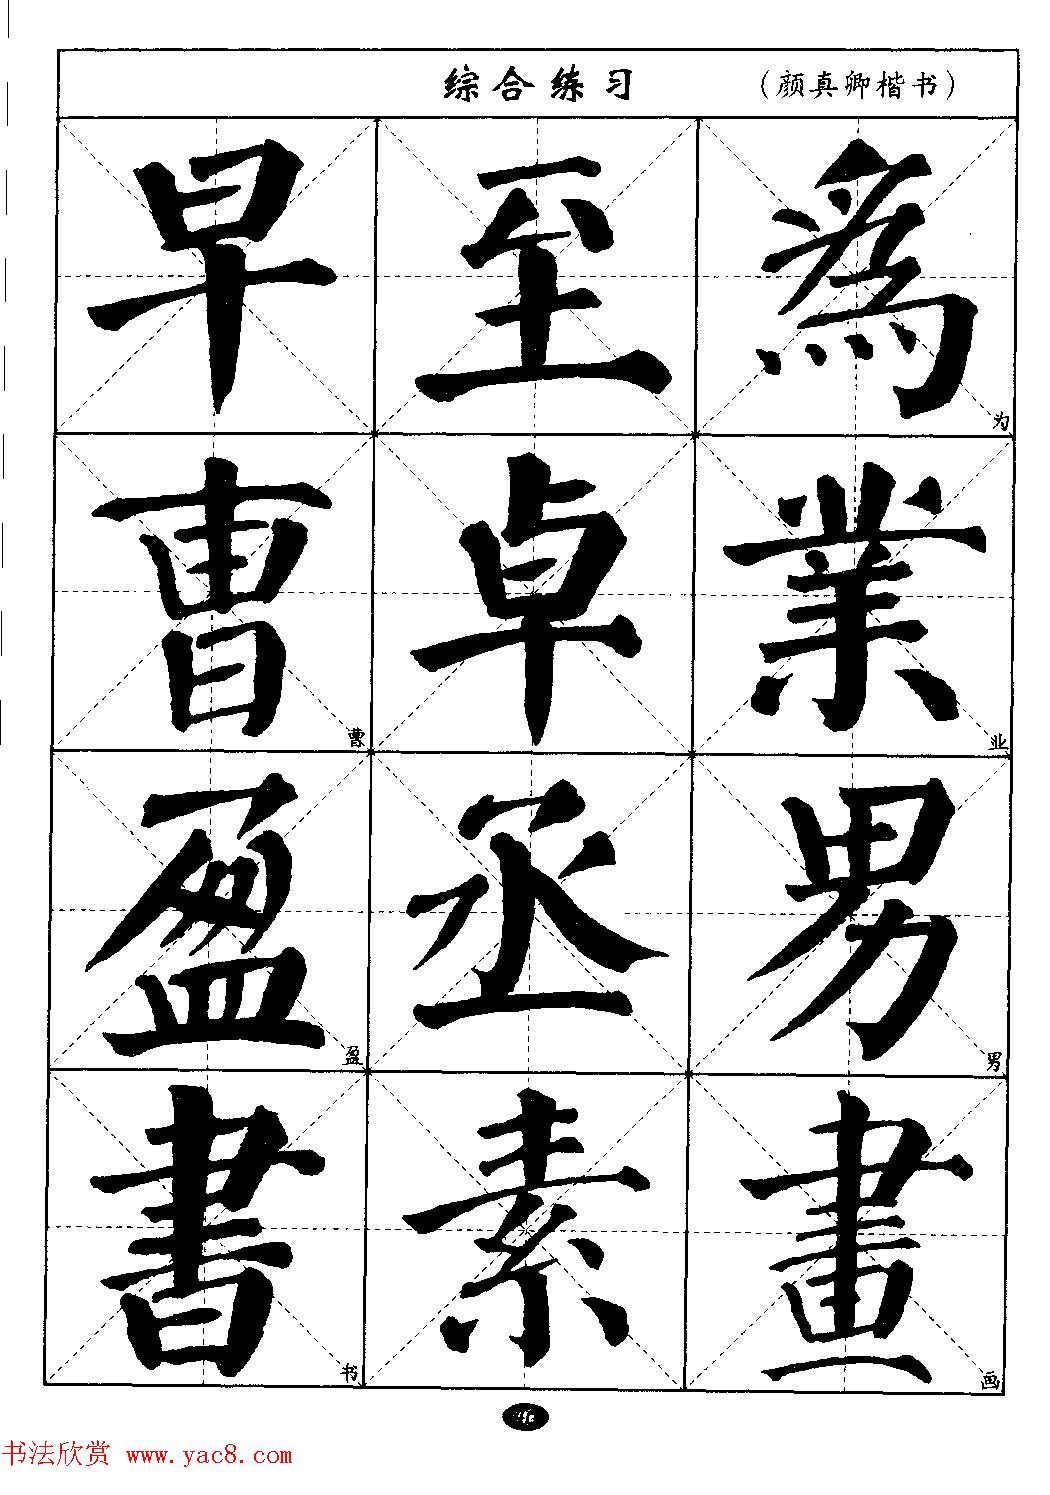 综合练习 (颜真卿楷书)
早 至 為 为
曹 曹 卓 業 业
盈 盈 丞 男 男
書 书 素 畫 画
书法欣赏 www.yac8.com